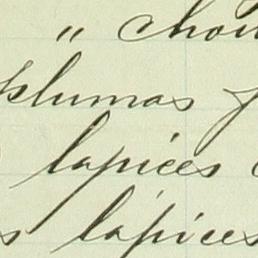 „ chou
plumas f
lapices
s lápices